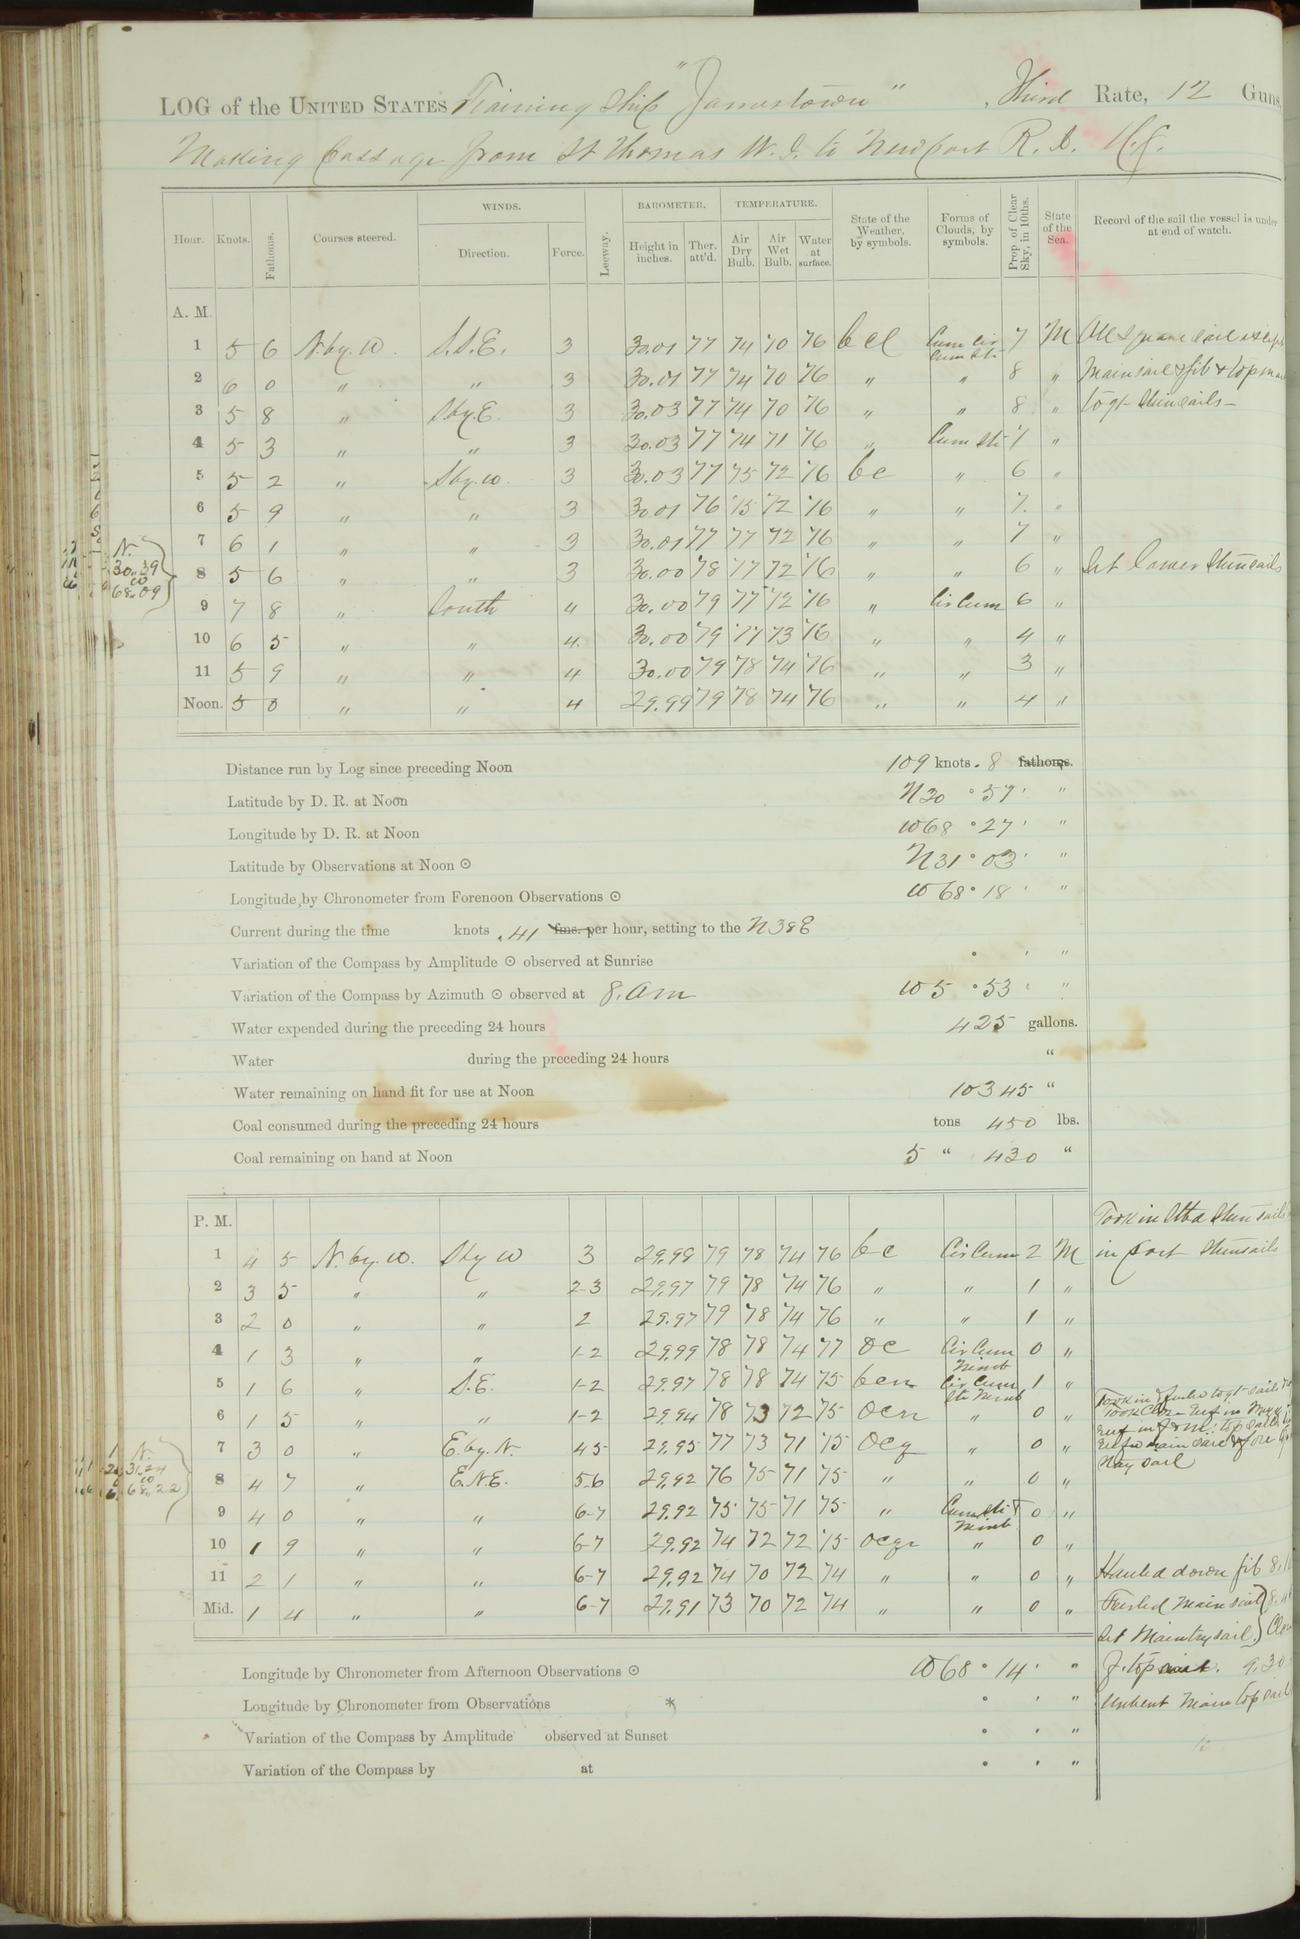 LOG of the UNITED STATES Training Ship "Jamestown", Third Rate, 12 Guns,
Making passage from St Thomas W. I. to Newport R. I.
Hour. Knots. Fathoms. Courses steered. WINDS. Direction. Force. Leeway. BAROMETER. Height in inches. Ther. att'd. TEMPERATURE. Air Dry Bulb. Air Wet Bulb. Water at surface. State of the Weather, by symbols. Forms of Clouds, by symbols. Prop. of Clear Sky, in 10ths. State of the Sea. Record of the sail the vessel is under at end of watch.
A. M.
1 5 6 N. by. W. S.S.E. 3 30.01 77 74 70 76 bcl Cum Cir Cum Str 7 M All square sail except
2 6 0 " " 3 30.01 77 74 70 76 " " 8 " Mainsail & jib & topmast
3 5 8 " S by. E. 3 30.03 77 74 70 76 " " 8 " to gt Stunsails
4 5 3 " " 3 30.03 77 74 71 76 " Cum Str 7 "
5 5 2 " S by. W. 3 30.03 77 75 72 76 bc " 6 "
6 5 9 " " 3 30.01 76 75 72 76 " " 7 "
7 6 1 " " 3 30.01 77 77 72 76 " " 7 "
N. 30.39 W 68.09
8 5 6 " " 3 30.00 78 77 72 76 " " 6 " Set lower Stunsails
9 7 8 " South 4 30.00 79 77 72 76 " Cir Cum 6 "
10 6 5 " " 4 30.00 79 77 73 76 " " 4 "
11 5 9 " " 4 30.00 79 78 74 76 " " 3 "
Noon. 5 0 " " 4 29.99 79 78 74 76 " " 4 "
Distance run by Log since preceding Noon 109 knots . 8 fathoms.
Latitude by D. R. at Noon N 30 ° 57 ' "
Longitude by D. R. at Noon W 68 ° 27 ' "
Latitude by Observations at Noon ⊙ N 31 ° 03 ' "
Longitude by Chronometer from Forenoon Observations ⊙ W 68 ° 18 ' "
Current during the time knots .41 fms. per hour, setting to the N38E
Variation of the Compass by Amplitude ⊙ observed at Sunrise ° ' "
Variation of the Compass by Azimuth ⊙ observed at 8. am W 5 ° 53 ' "
Water expended during the preceding 24 hours 425 gallons.
Water during the preceding 24 hours "
Water remaining on hand fit for use at Noon 10345 "
Coal consumed during the preceding 24 hours tons 450 lbs.
Coal remaining on hand at Noon 5 " 430 "
P. M. Took in Stbd Stun sails
1 4 5 N. by. W. S by W 3 29.98 79 78 74 76 bc Cir Cum 2 M in port Stunsails
2 3 5 " " 2-3 29.97 79 78 74 76 " " 1 "
3 2 0 " " 2 29.97 79 78 74 76 " " 1 "
4 1 3 " " 1-2 29.99 78 78 74 77 oc Cir Cum Nimb 0 "
5 1 6 " S.E. 1-2 29.97 78 78 74 75 bcm Cir Cum Str Nimb 1 " Took in & furled to gt sails
6 1 5 " " 1-2 29.94 78 73 72 75 ocn " 0 " Took Close Reef in Mizz
reef in F & M. top sails
7 3 0 " E. by. N. 4-5 29.95 77 73 71 75 ocq " 0 " Reefed main sail & fore
N. 31.24 W 68.22
8 4 7 " E.N.E. 5-6 29.92 76 75 71 75 " " 0 " stay sail
9 4 0 " " 6-7 29.92 75 75 71 75 " Cum Str & Nimb 0 "
10 1 9 " " 6-7 29.92 74 72 72 75 ocqr " 0 "
11 2 1 " " 6-7 29.92 74 70 72 74 " " 0 " Hauled down jib
Mid. 1 4 " " 6-7 29.91 73 70 72 74 " " 0 " Furled Mainsail
Set Maintrysail
Longitude by Chronometer from Afternoon Observations ⊙ W 68 ° 14 ' " F. topsail. 9.30
Longitude by Chronometer from Observations * ° ' " Unbent Main topsail
Variation of the Compass by Amplitude observed at Sunset ° ' "
Variation of the Compass by at ° ' "